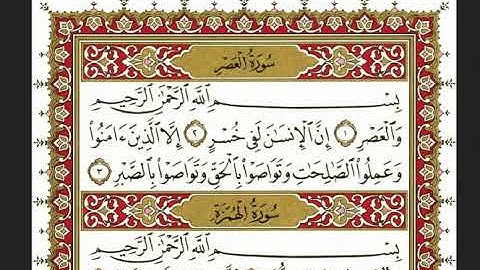 سُورَةُ الْعَصْرِ
بِسْمِ اللَّهِ الرَّحْمَٰنِ الرَّحِيمِ
وَالْعَصْرِ ۝١ إِنَّ الْإِنسَانَ لَفِي خُسْرٍ ۝٢ إِلَّا الَّذِينَ ءَامَنُوا
وَعَمِلُوا الصَّالِحَاتِ وَتَوَاصَوْا بِالْحَقِّ وَتَوَاصَوْا بِالصَّبْرِ ۝٣
سُورَةُ الْهُمَزَةِ
بِسْمِ اللَّهِ الرَّحْمَٰنِ الرَّحِيمِ